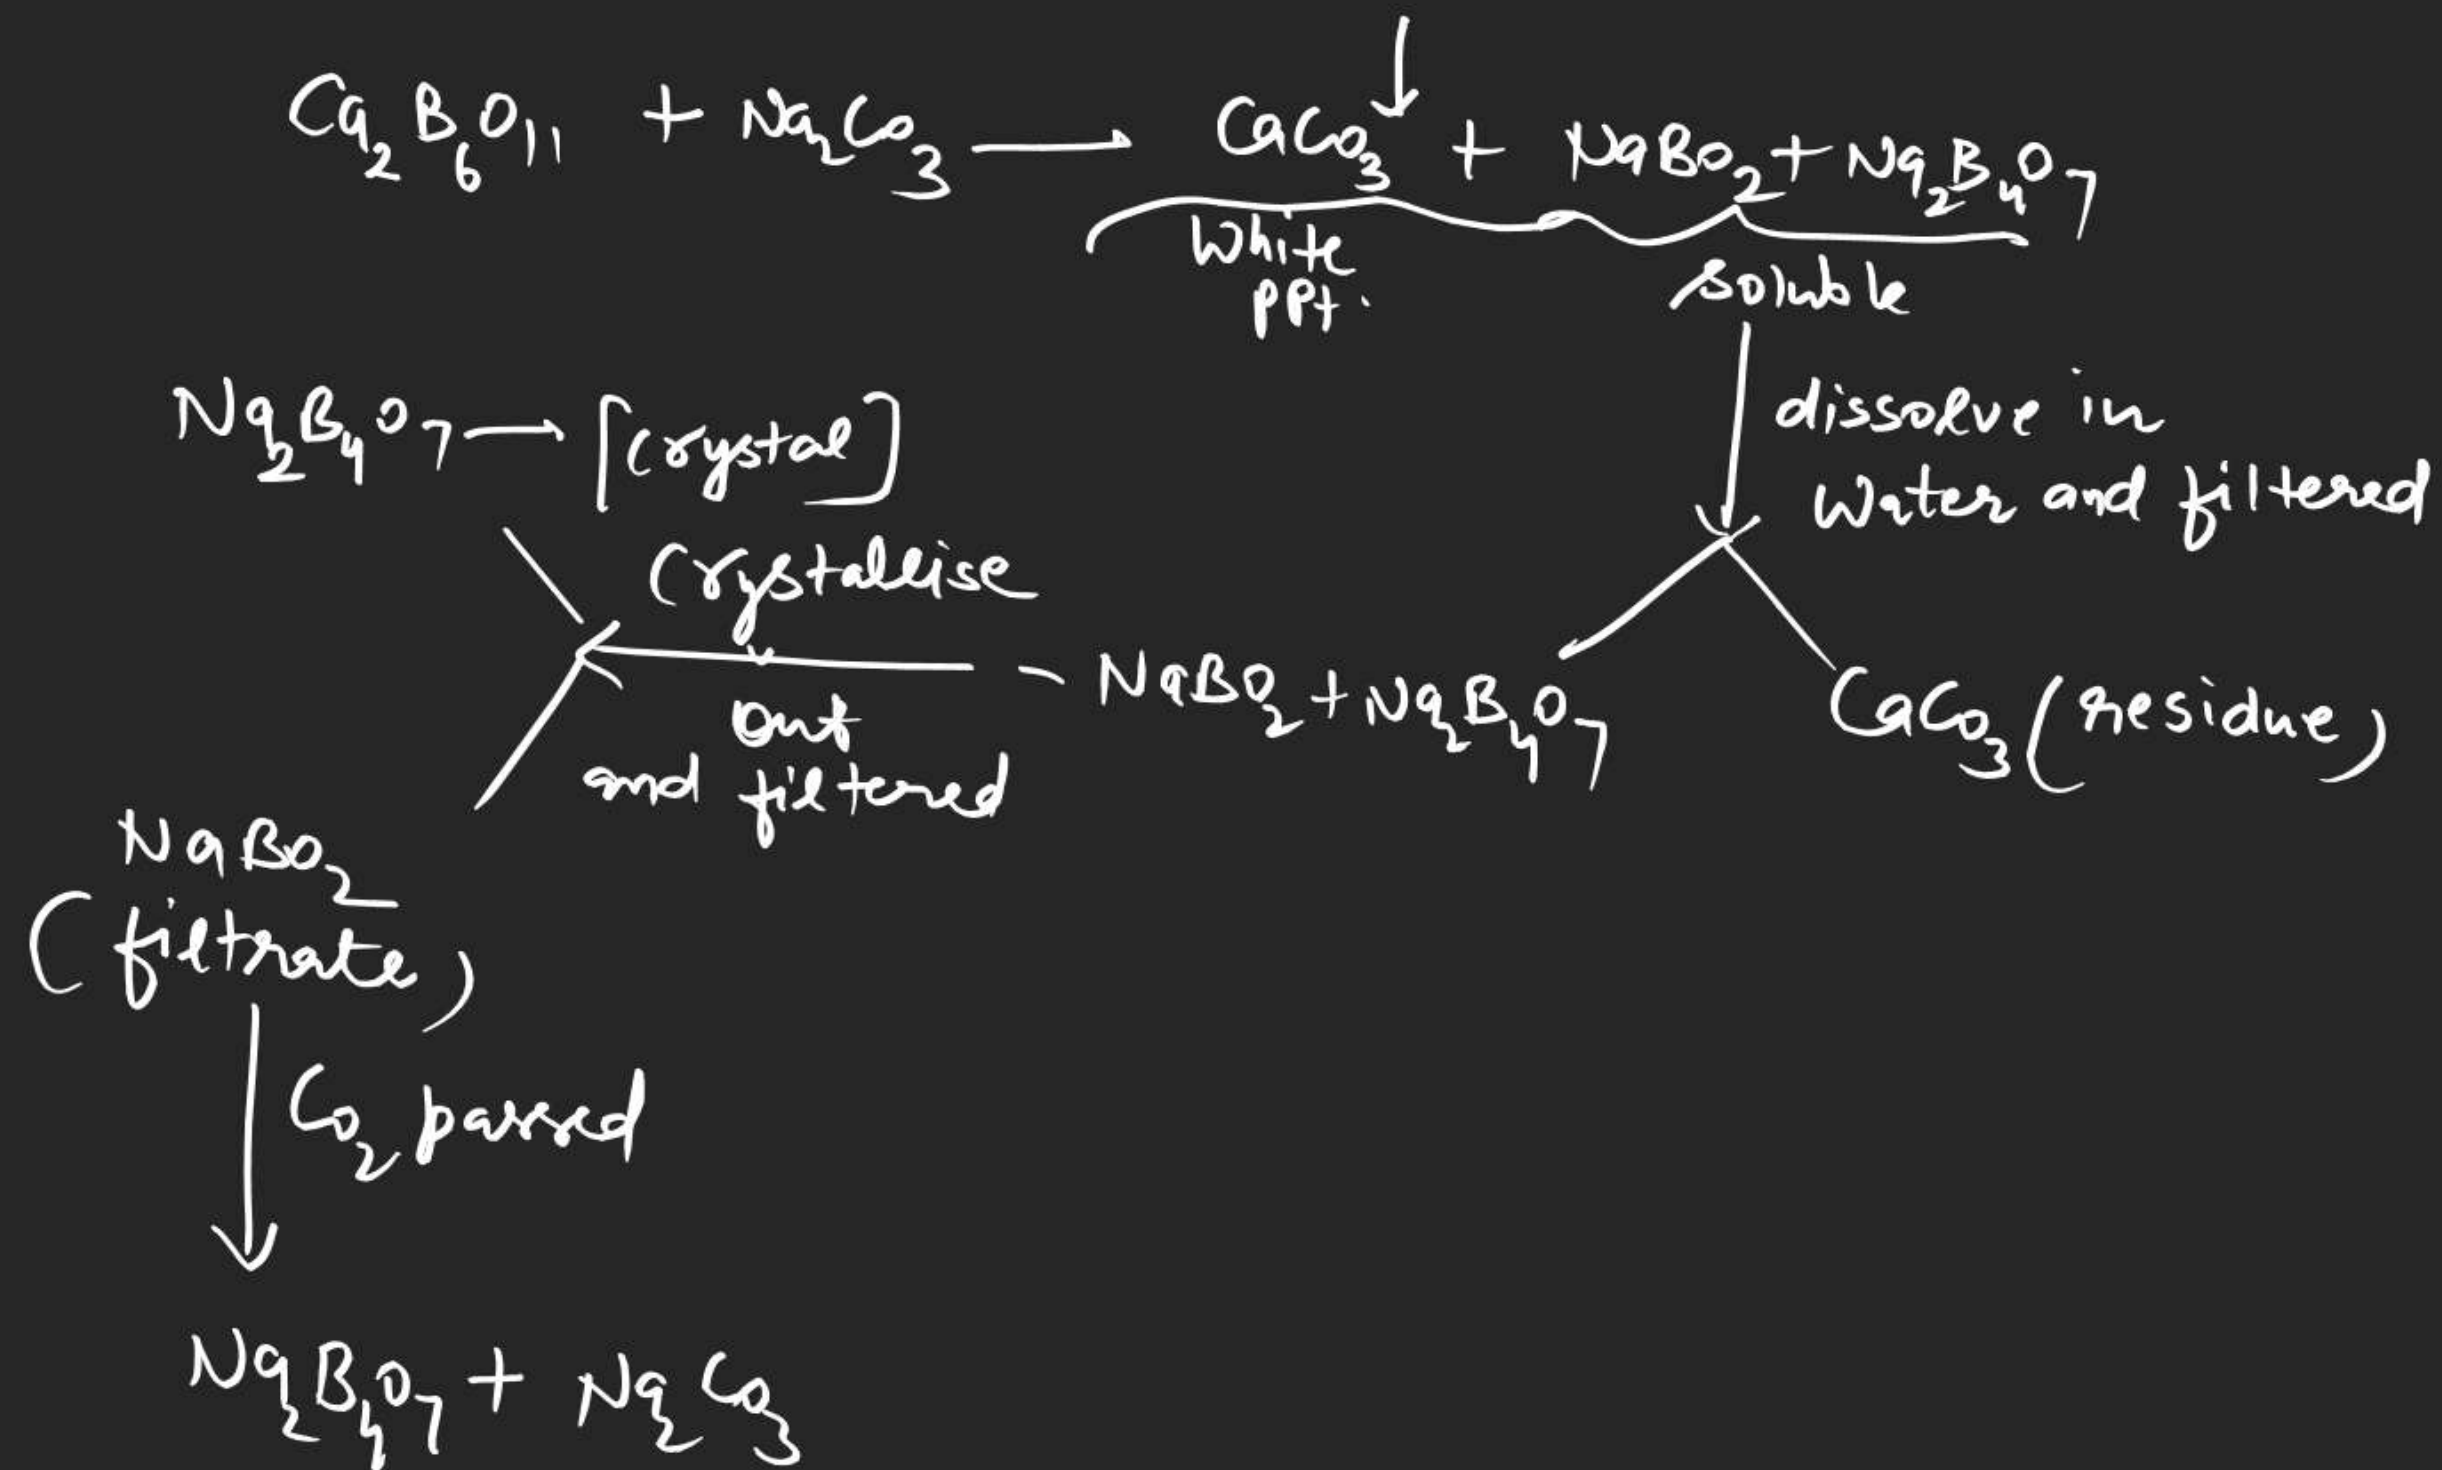 Ca₂B₆O₁₁ + Na₂CO₃ ⟶ CaCO₃↓ + NaBO₂ + Na₂B₄O₇
White
ppt.
soluble
dissolve in
water and filtered
Na₂B₄O₇ → [crystal]
Crystallise
out
and filtered
NaBO₂ + Na₂B₄O₇
CaCO₃ (residue)
NaBO₂
(filtrate)
CO₂ passed
Na₂B₄O₇ + Na₂CO₃